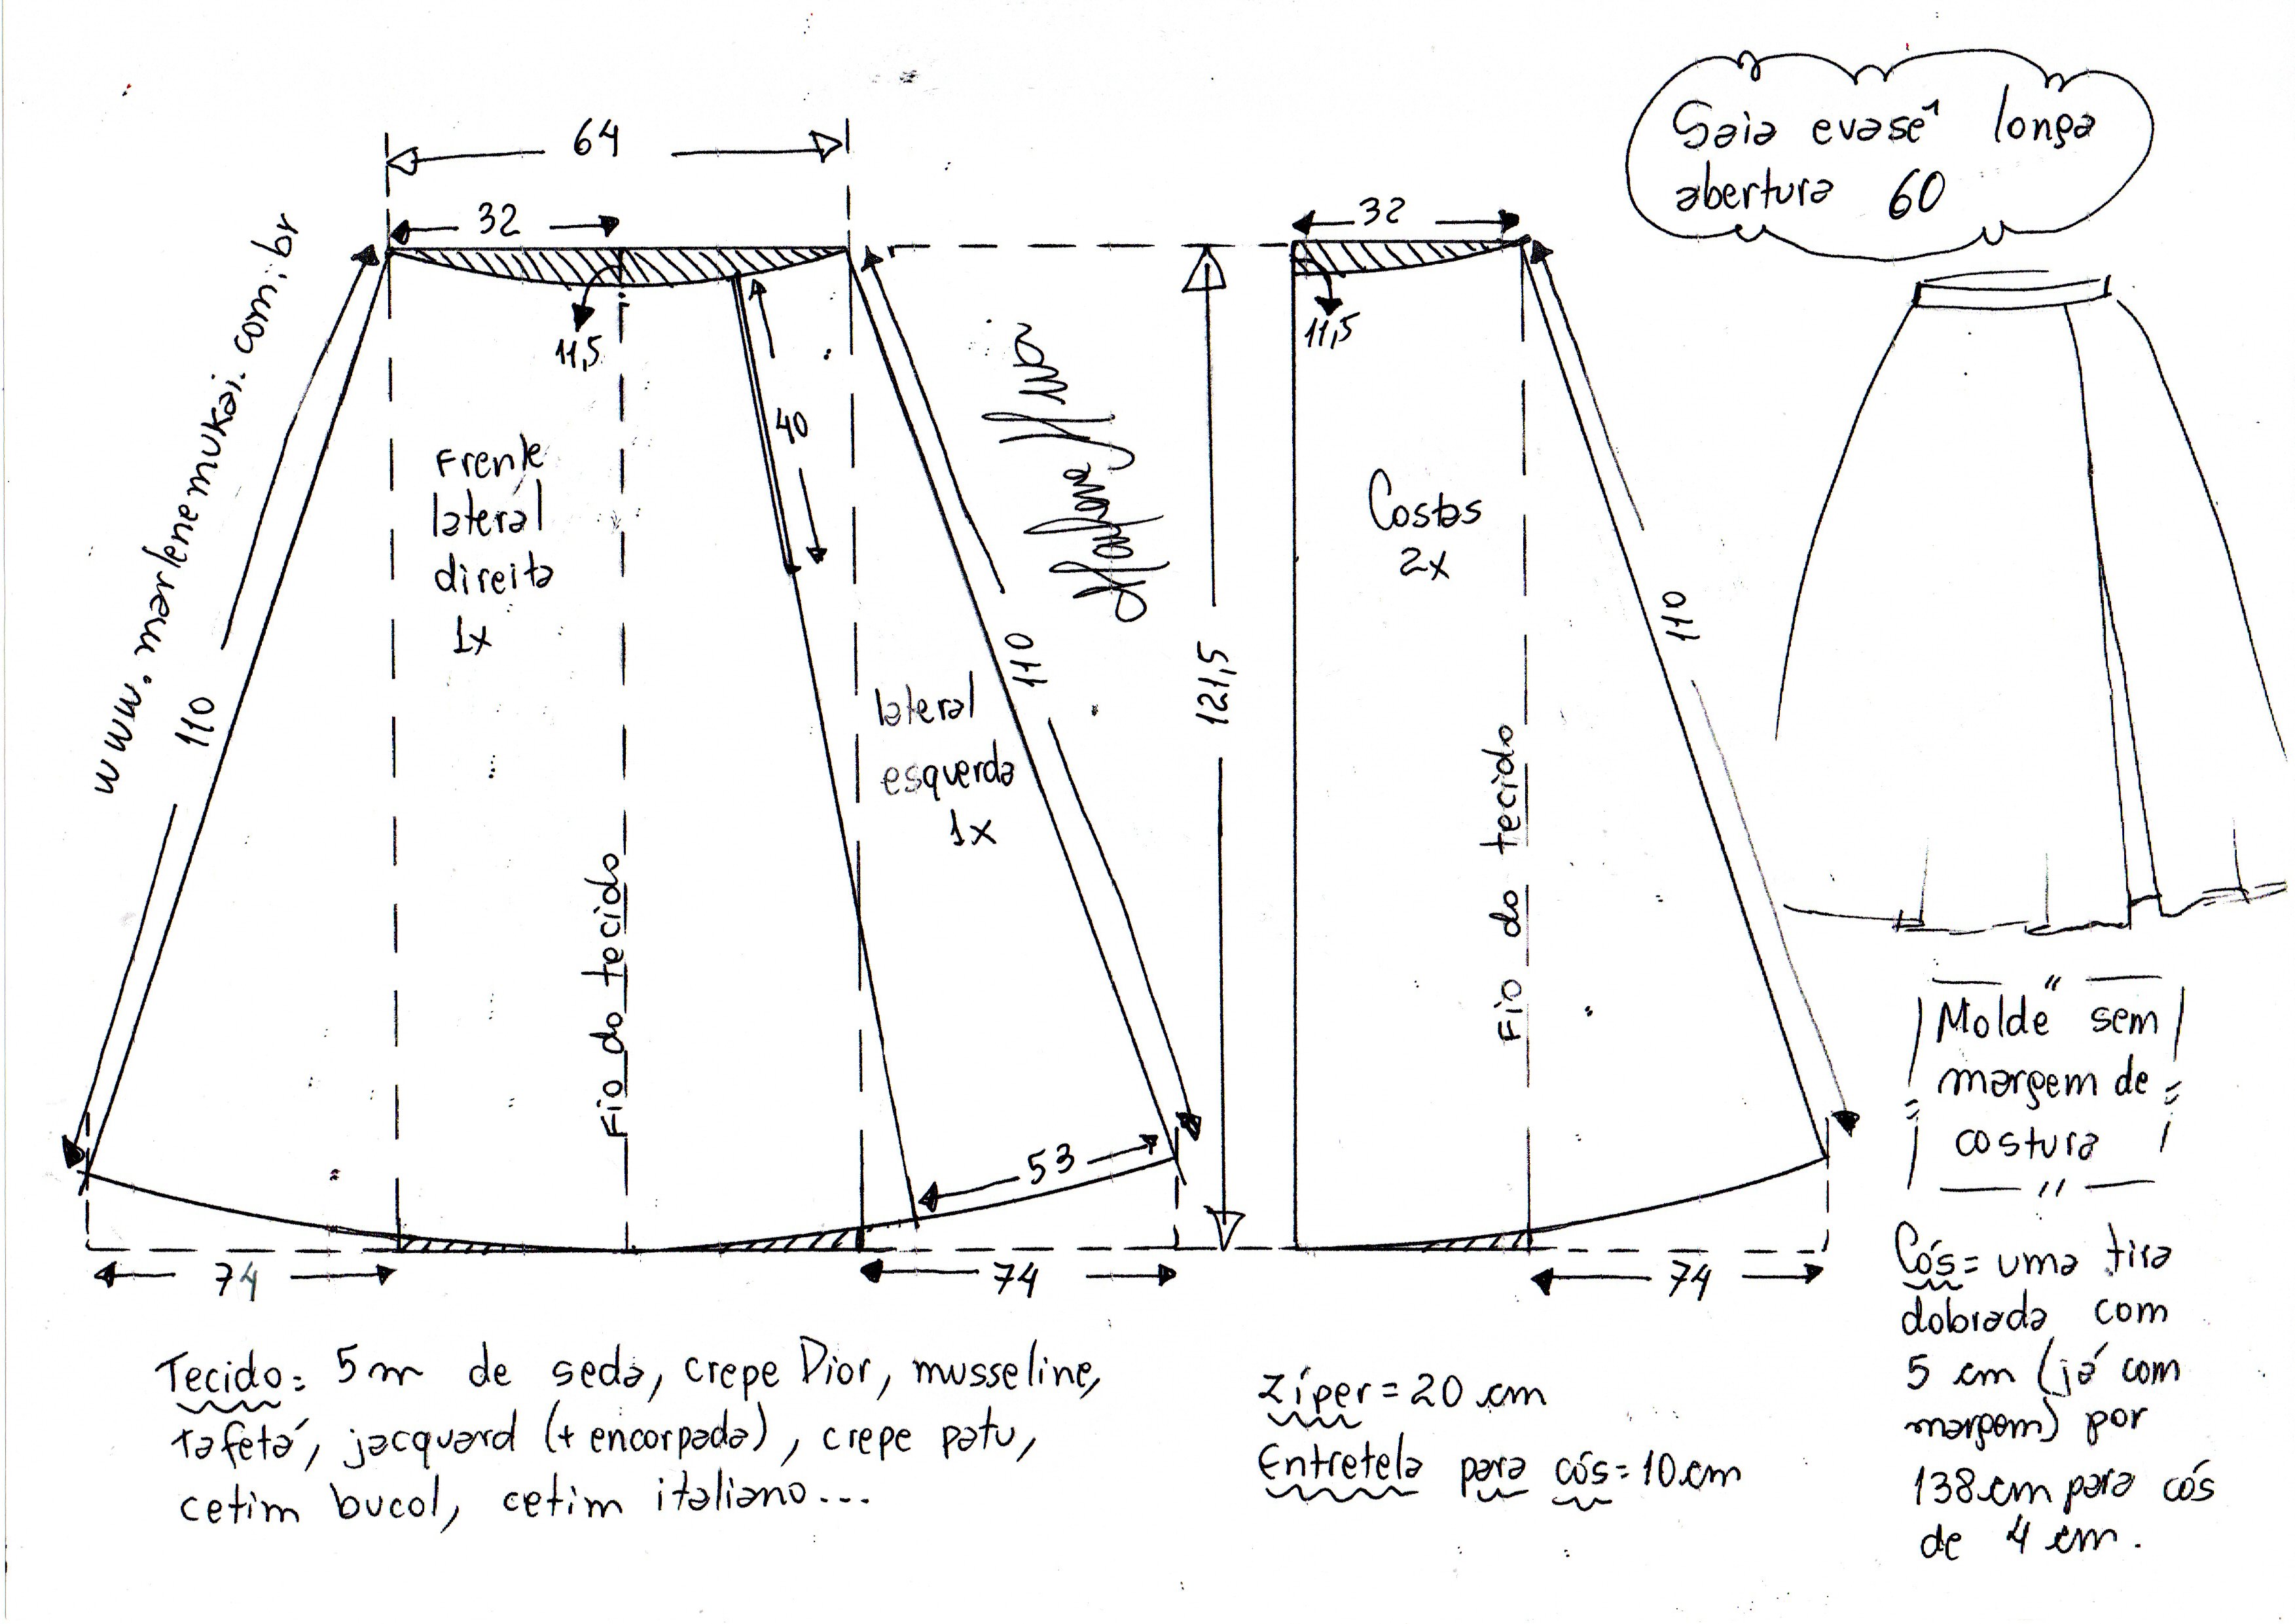 Saia evasê longa
abertura 60
64
32
32
11,5
11,5
40
www.marlenemukai.com.br
Frente
lateral
direita
1x
110
lateral
esquerda
1x
110
121,5
Costas
2x
110
Fio do tecido
Fio do tecido
53
74
74
74
Molde sem
margem de
costura
Tecido: 5m de seda, crepe Dior, musseline,
tafetá, jacquard (+ encorpada), crepe patu,
cetim bucol, cetim italiano...
Zíper = 20 cm
Entretela para cós = 10 cm
Cós = uma tira
dobrada com
5 cm (já com
margem) por
138 cm para cós
de 4 cm.